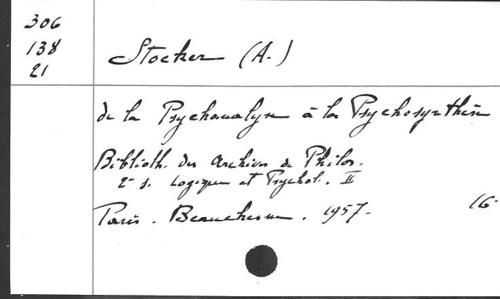 306
138
21
Stocker (A.)
de la Psychanalyse à la Psychosynthèse
Biblioth. des Archives de Philos.
2e s. Logique et Psychol. II
Paris. Beauchesne. 1957.
16-